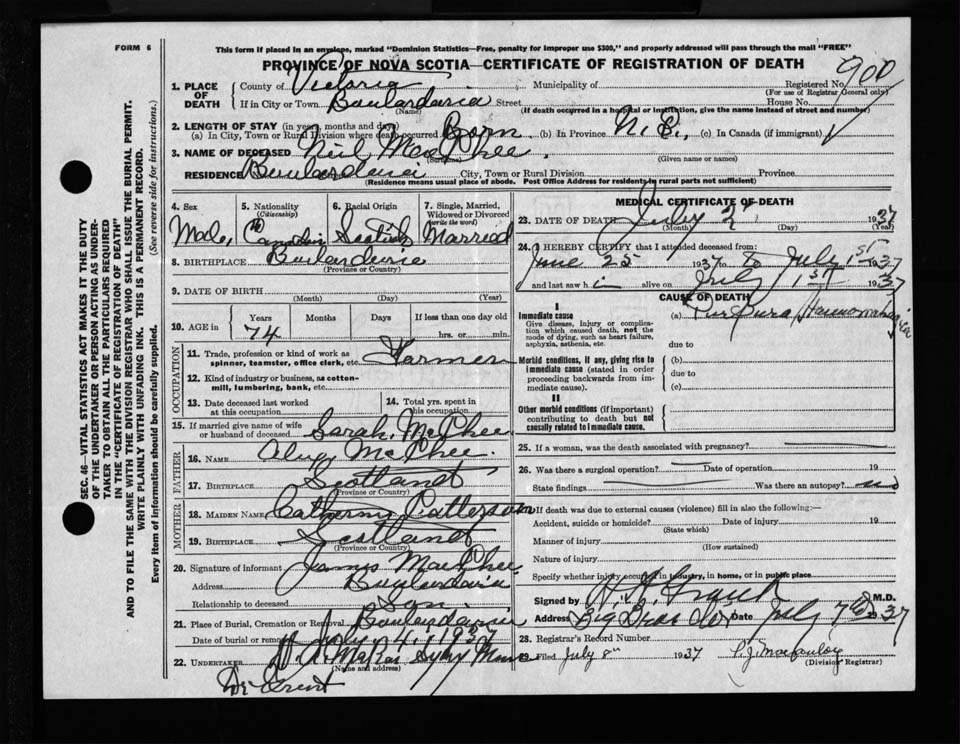 FORM 6
This form if placed in an envelope, marked "Dominion Statistics—Free, penalty for improper use $300," and properly addressed will pass through the mail "FREE"
PROVINCE OF NOVA SCOTIA—CERTIFICATE OF REGISTRATION OF DEATH
1. PLACE OF DEATH
County of Victoria Municipality of Registered No. 900
(For use of Registrar General only)
If in City or Town Boulardaria Street House No.
(Name) (If death occurred in a hospital or institution, give the name instead of street and number)
2. LENGTH OF STAY (in years, months and days)
(a) In City, Town or Rural Division where death occurred Born (b) In Province N.S., (c) In Canada (if immigrant)
3. NAME OF DECEASED Neil MacPhee
(Surname) (Given name or names)
RESIDENCE Boulardaria City, Town or Rural Division Province
(Residence means usual place of abode. Post Office Address for residents in rural parts not sufficient)
4. Sex Male
5. Nationality (Citizenship) Canadian
6. Racial Origin Scotish
7. Single, Married, Widowed or Divorced (write the word) Married
8. BIRTHPLACE Boulardarie
(Province or Country)
9. DATE OF BIRTH
(Month) (Day) (Year)
10. AGE in Years 74 Months Days If less than one day old
hrs. or min.
OCCUPATION
11. Trade, profession or kind of work as spinner, teamster, office clerk, etc. Farmer
12. Kind of industry or business, as cotton-mill, lumbering, bank, etc.
13. Date deceased last worked at this occupation
14. Total yrs. spent in this occupation
15. If married give name of wife or husband of deceased Sarah McPhee
FATHER
16. NAME McPhee
17. BIRTHPLACE Scotland
(Province or Country)
MOTHER
18. MAIDEN NAME Catherine Patterson
19. BIRTHPLACE Scotland
(Province or Country)
20. Signature of informant James MacPhee
Address Boulardaria
Relationship to deceased Son
21. Place of Burial, Cremation or Removal Boulardaria
Date of burial or removal July 4, 1937
22. UNDERTAKER Sydney Mines
(Name and address)
MEDICAL CERTIFICATE OF DEATH
23. DATE OF DEATH July 2 1937
(Month) (Day)
24. I HEREBY CERTIFY that I attended deceased from:
June 25 1937 to July 1st 1937
and last saw h im alive on July 1st 1937
CAUSE OF DEATH
I
Immediate cause
Give disease, injury or complication which caused death, not the mode of dying, such as heart failure, asphyxia, asthenia, etc.
(a) Purpura Haemorrhagica
due to
Morbid conditions, if any, giving rise to immediate cause (stated in order proceeding backwards from immediate cause).
(b)
due to
(c)
II
Other morbid conditions (if important) contributing to death but not causally related to immediate cause.
25. If a woman, was the death associated with pregnancy?
26. Was there a surgical operation? Date of operation 19
State findings Was there an autopsy? no
27. If death was due to external causes (violence) fill in also the following:—
Accident, suicide or homicide? Date of injury 19
(State which)
Manner of injury
(How sustained)
Nature of injury
Specify whether injury occurred in industry, in home, or in public place
Signed by M.D.
Address Date July 7th 1937
28. Registrar's Record Number
29. Filed July 8th 1937
(Division Registrar)
SEC. 46—VITAL STATISTICS ACT MAKES IT THE DUTY
OF THE UNDERTAKER OR PERSON ACTING AS UNDER-
TAKER TO OBTAIN ALL THE PARTICULARS REQUIRED
IN THE "CERTIFICATE OF REGISTRATION OF DEATH"
AND TO FILE THE SAME WITH THE DIVISION REGISTRAR WHO SHALL ISSUE THE BURIAL PERMIT.
WRITE PLAINLY WITH UNFADING INK. THIS IS A PERMANENT RECORD.
Every item of information should be carefully supplied. (See reverse side for instructions.)